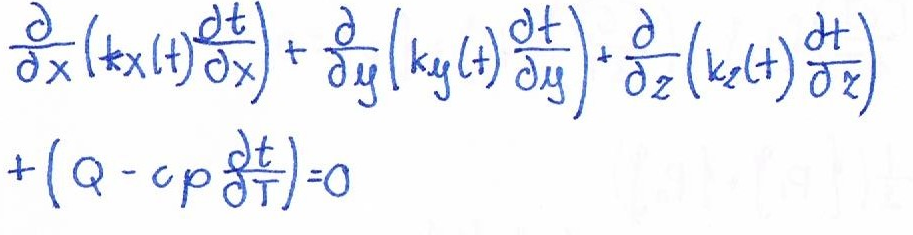 ∂/∂x (kx(t) ∂t/∂x) + ∂/∂y (ky(t) ∂t/∂y) + ∂/∂z (kz(t) ∂t/∂z)
+ (Q - cp ∂t/∂T) = 0